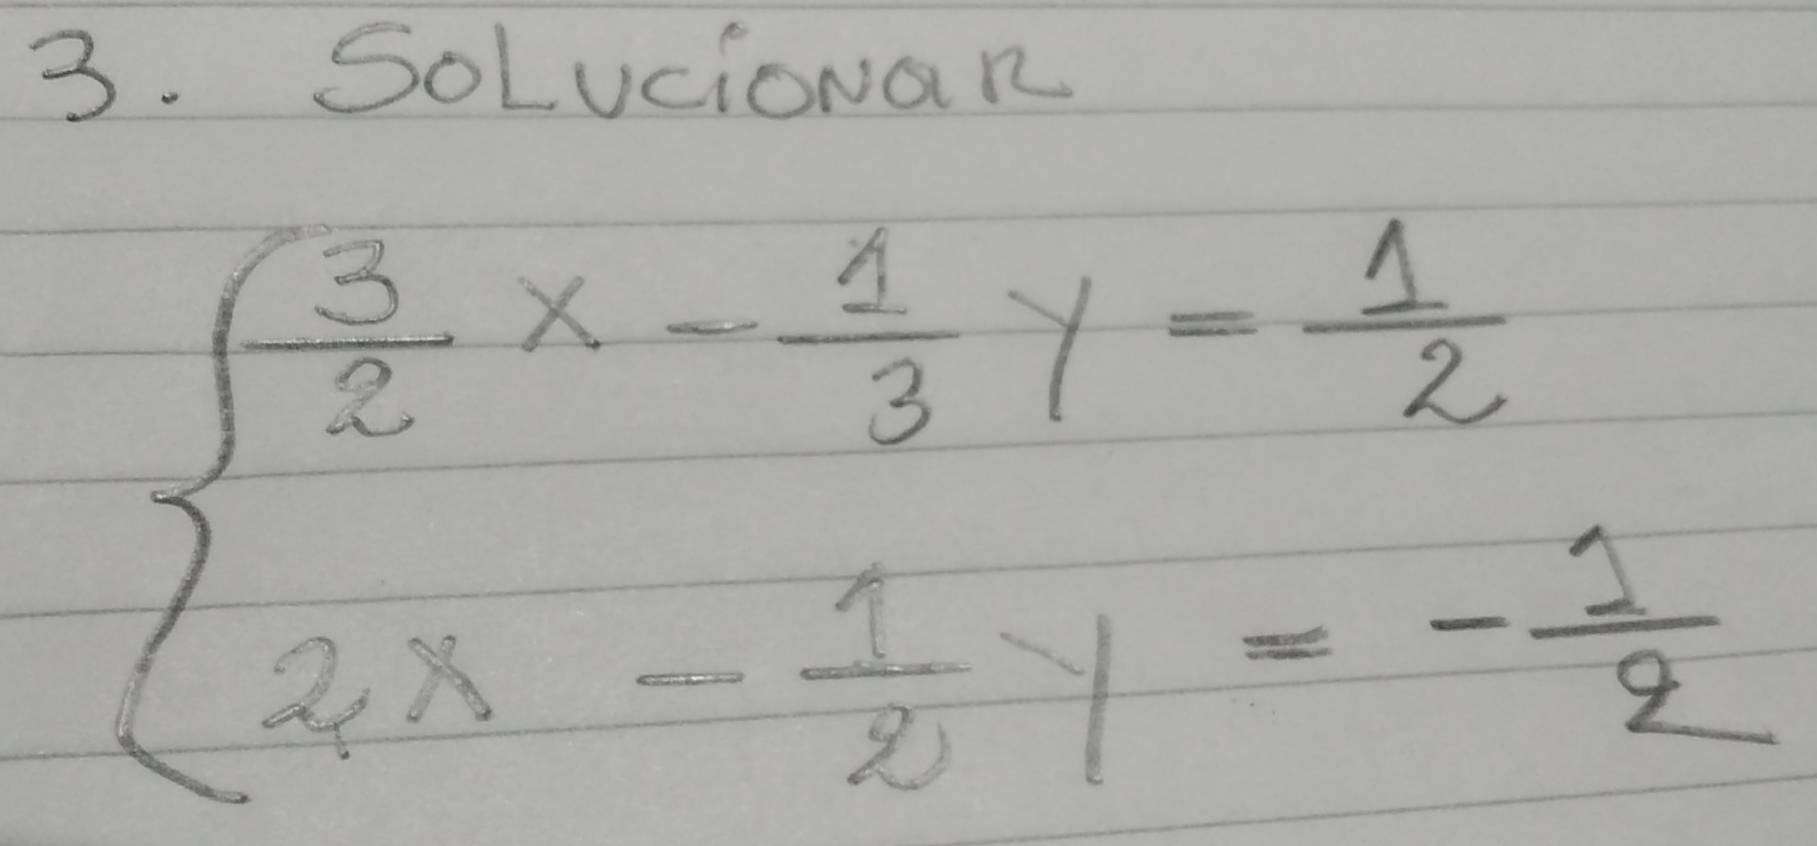 3. Solucionar
3/2 x - 1/3 y = 1/2
2x - 1/2 y = - 1/2